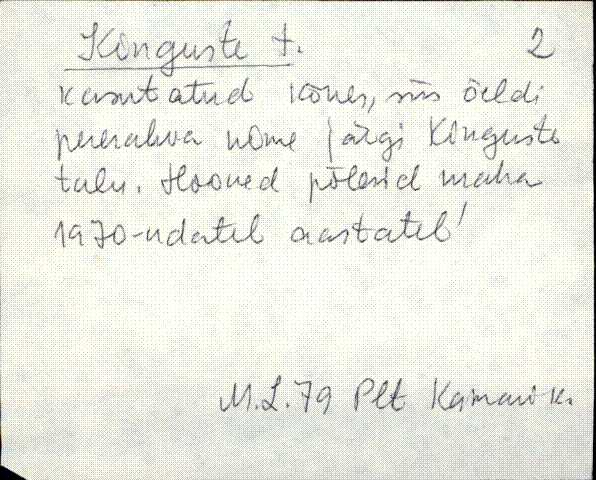 Kõnguste t. 2
kasutatud kõnes, siis öeldi
pererahva nime järgi Kõnguste
talu. Hooned põlesid maha
1970-ndatel aastatel!
M.L.79 Plt